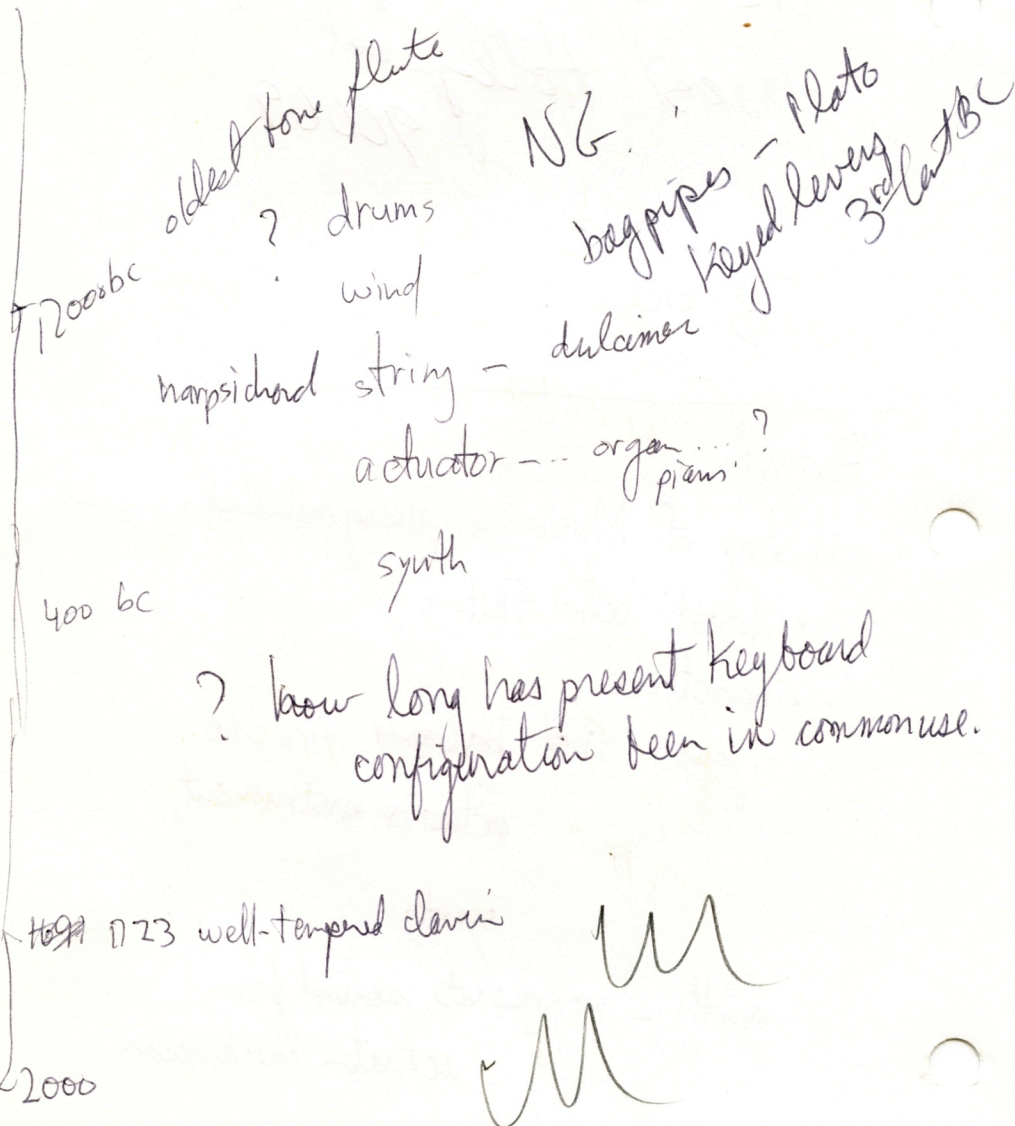 oldest bone flute
NG.
bagpipes – Plato
keyed levers
3rd Cent BC
? drums
wind
12000bc
harpsichord string – dulcimer
actuator --.. organ...?
piano.
synth
400 bc
? how long has present keyboard
configuration been in common use.
1723 well-tempered clavier
2000